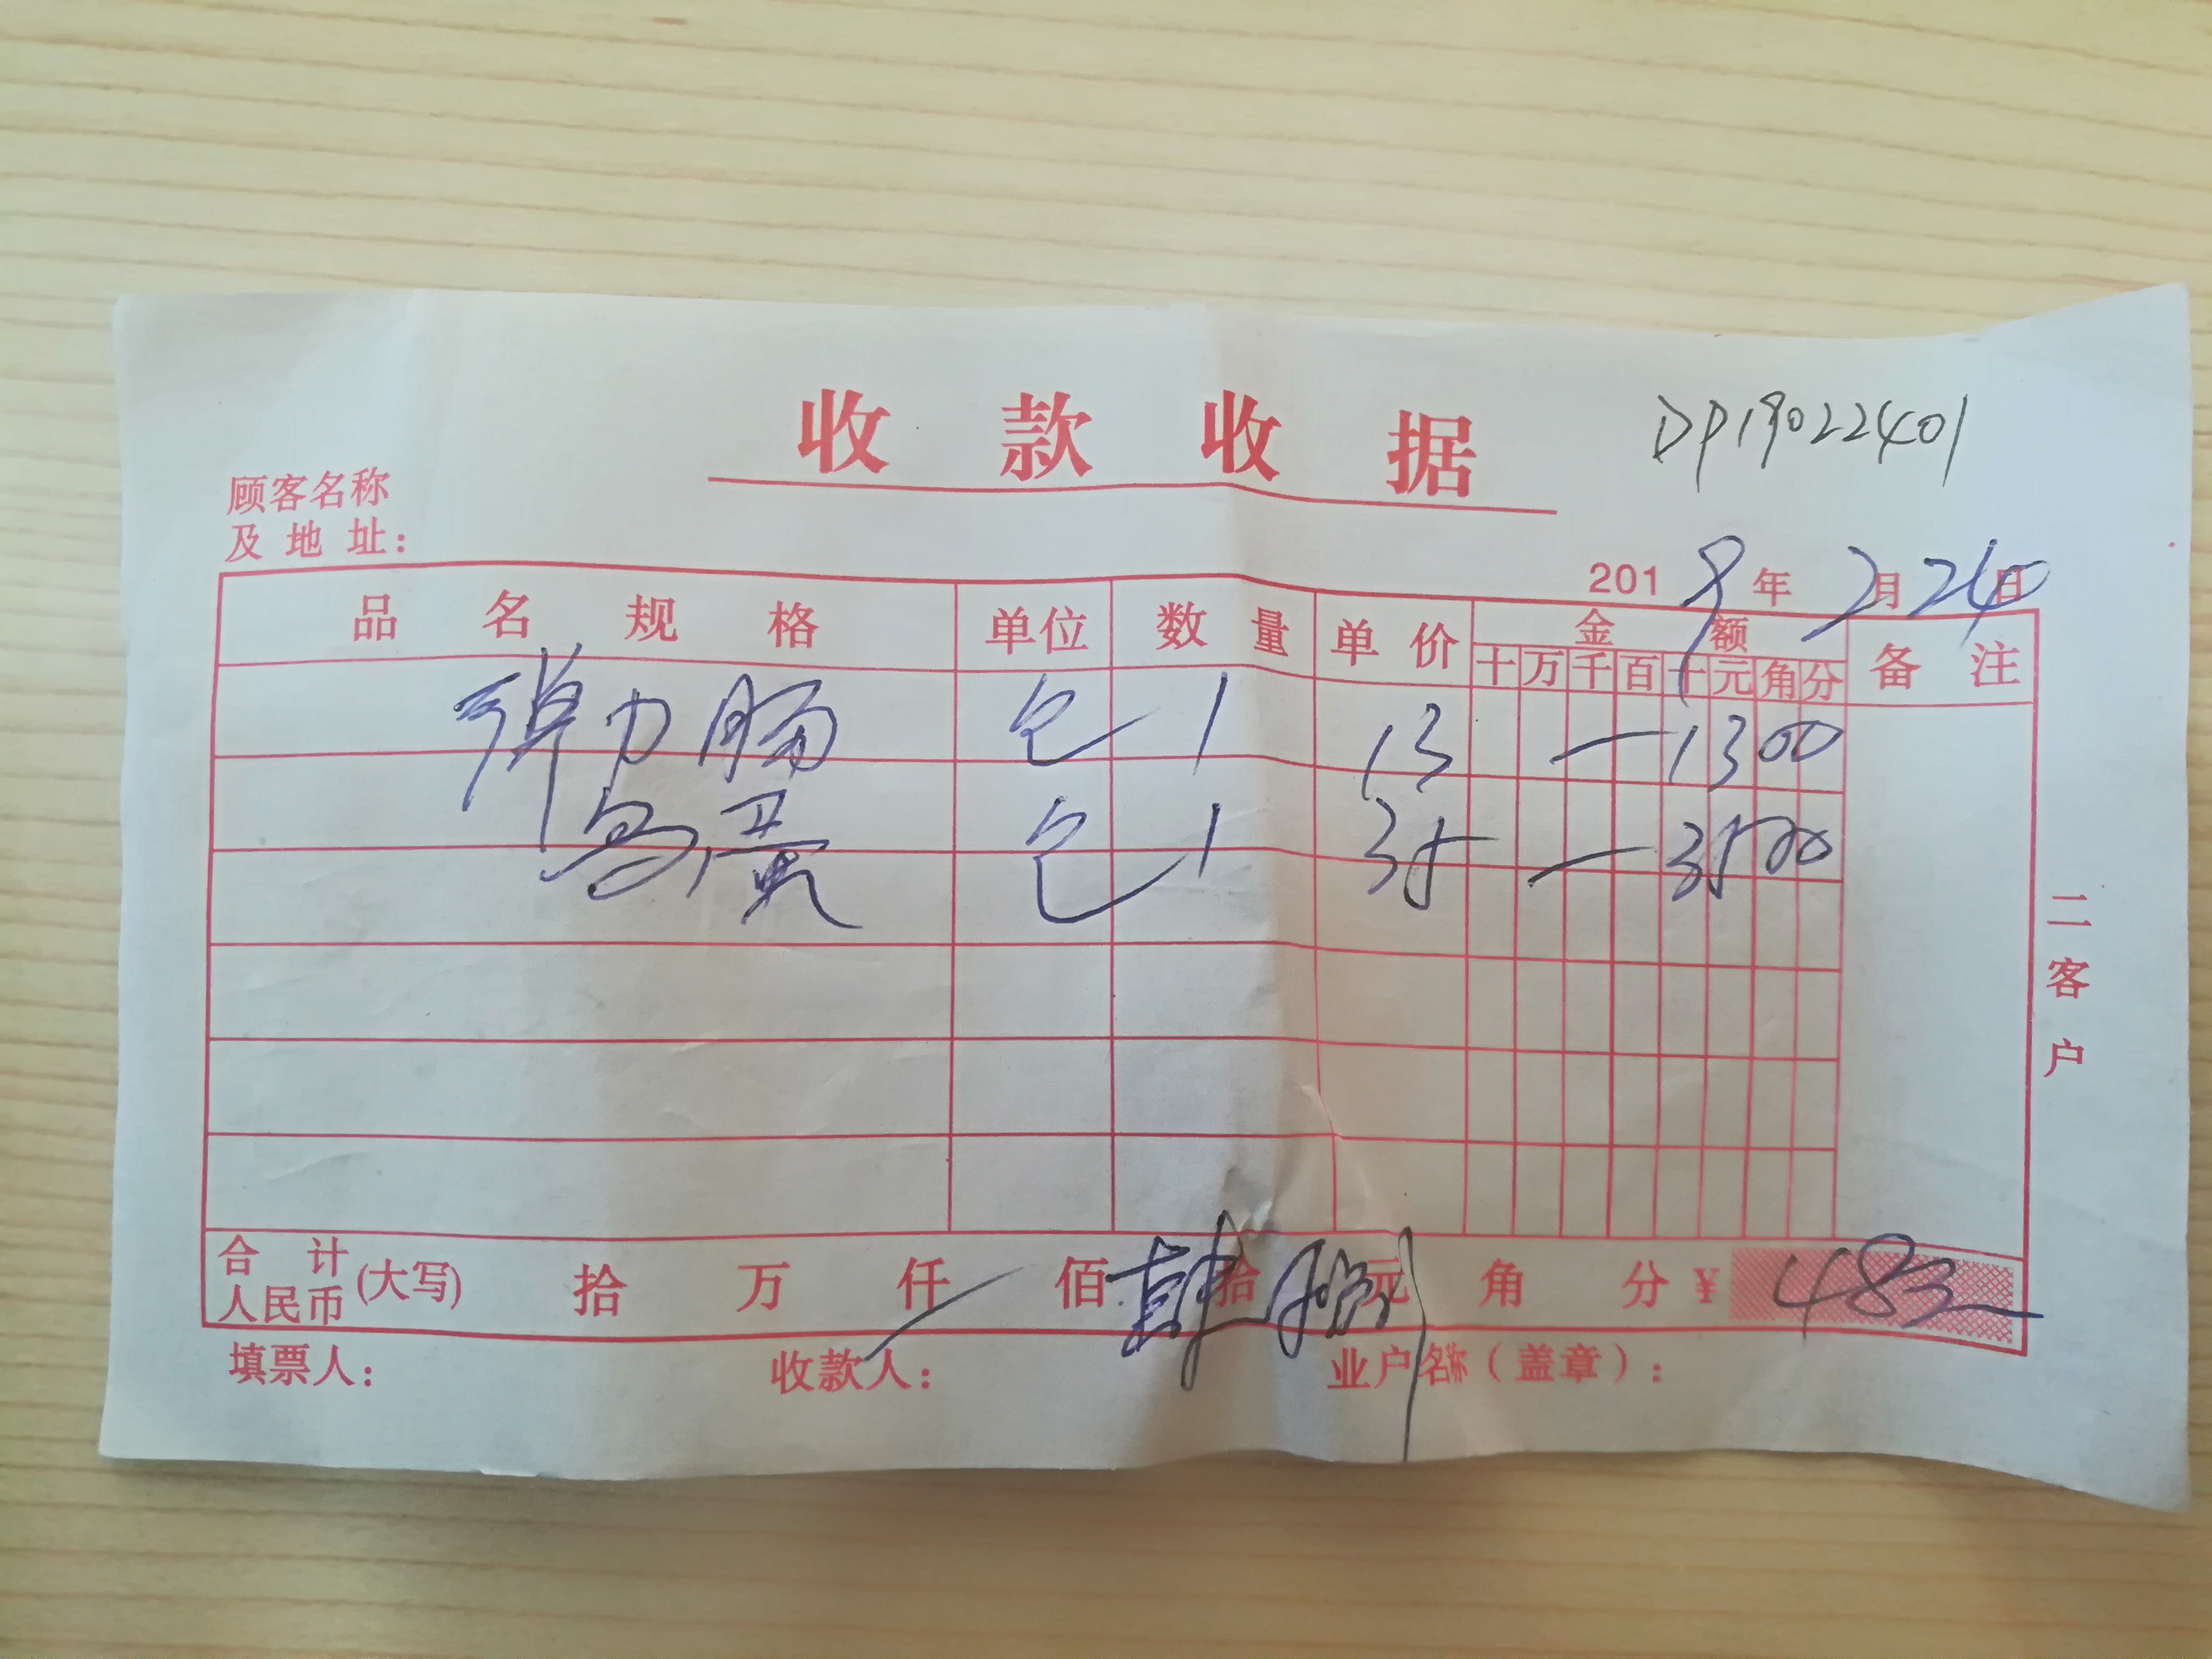 收款收据
DP19022401
顾客名称
及地址：
2019年2月24日
品名规格 单位 数量 单价 金额 备注
十 万 千 百 十 元 角 分
弹力肠 包 1 13 1300
包 1 35 3500
二客户
合计
人民币
(大写) 拾 万 仟 佰 肆拾捌元 角 分 ¥ 48
填票人： 收款人： 业户名称（盖章）：